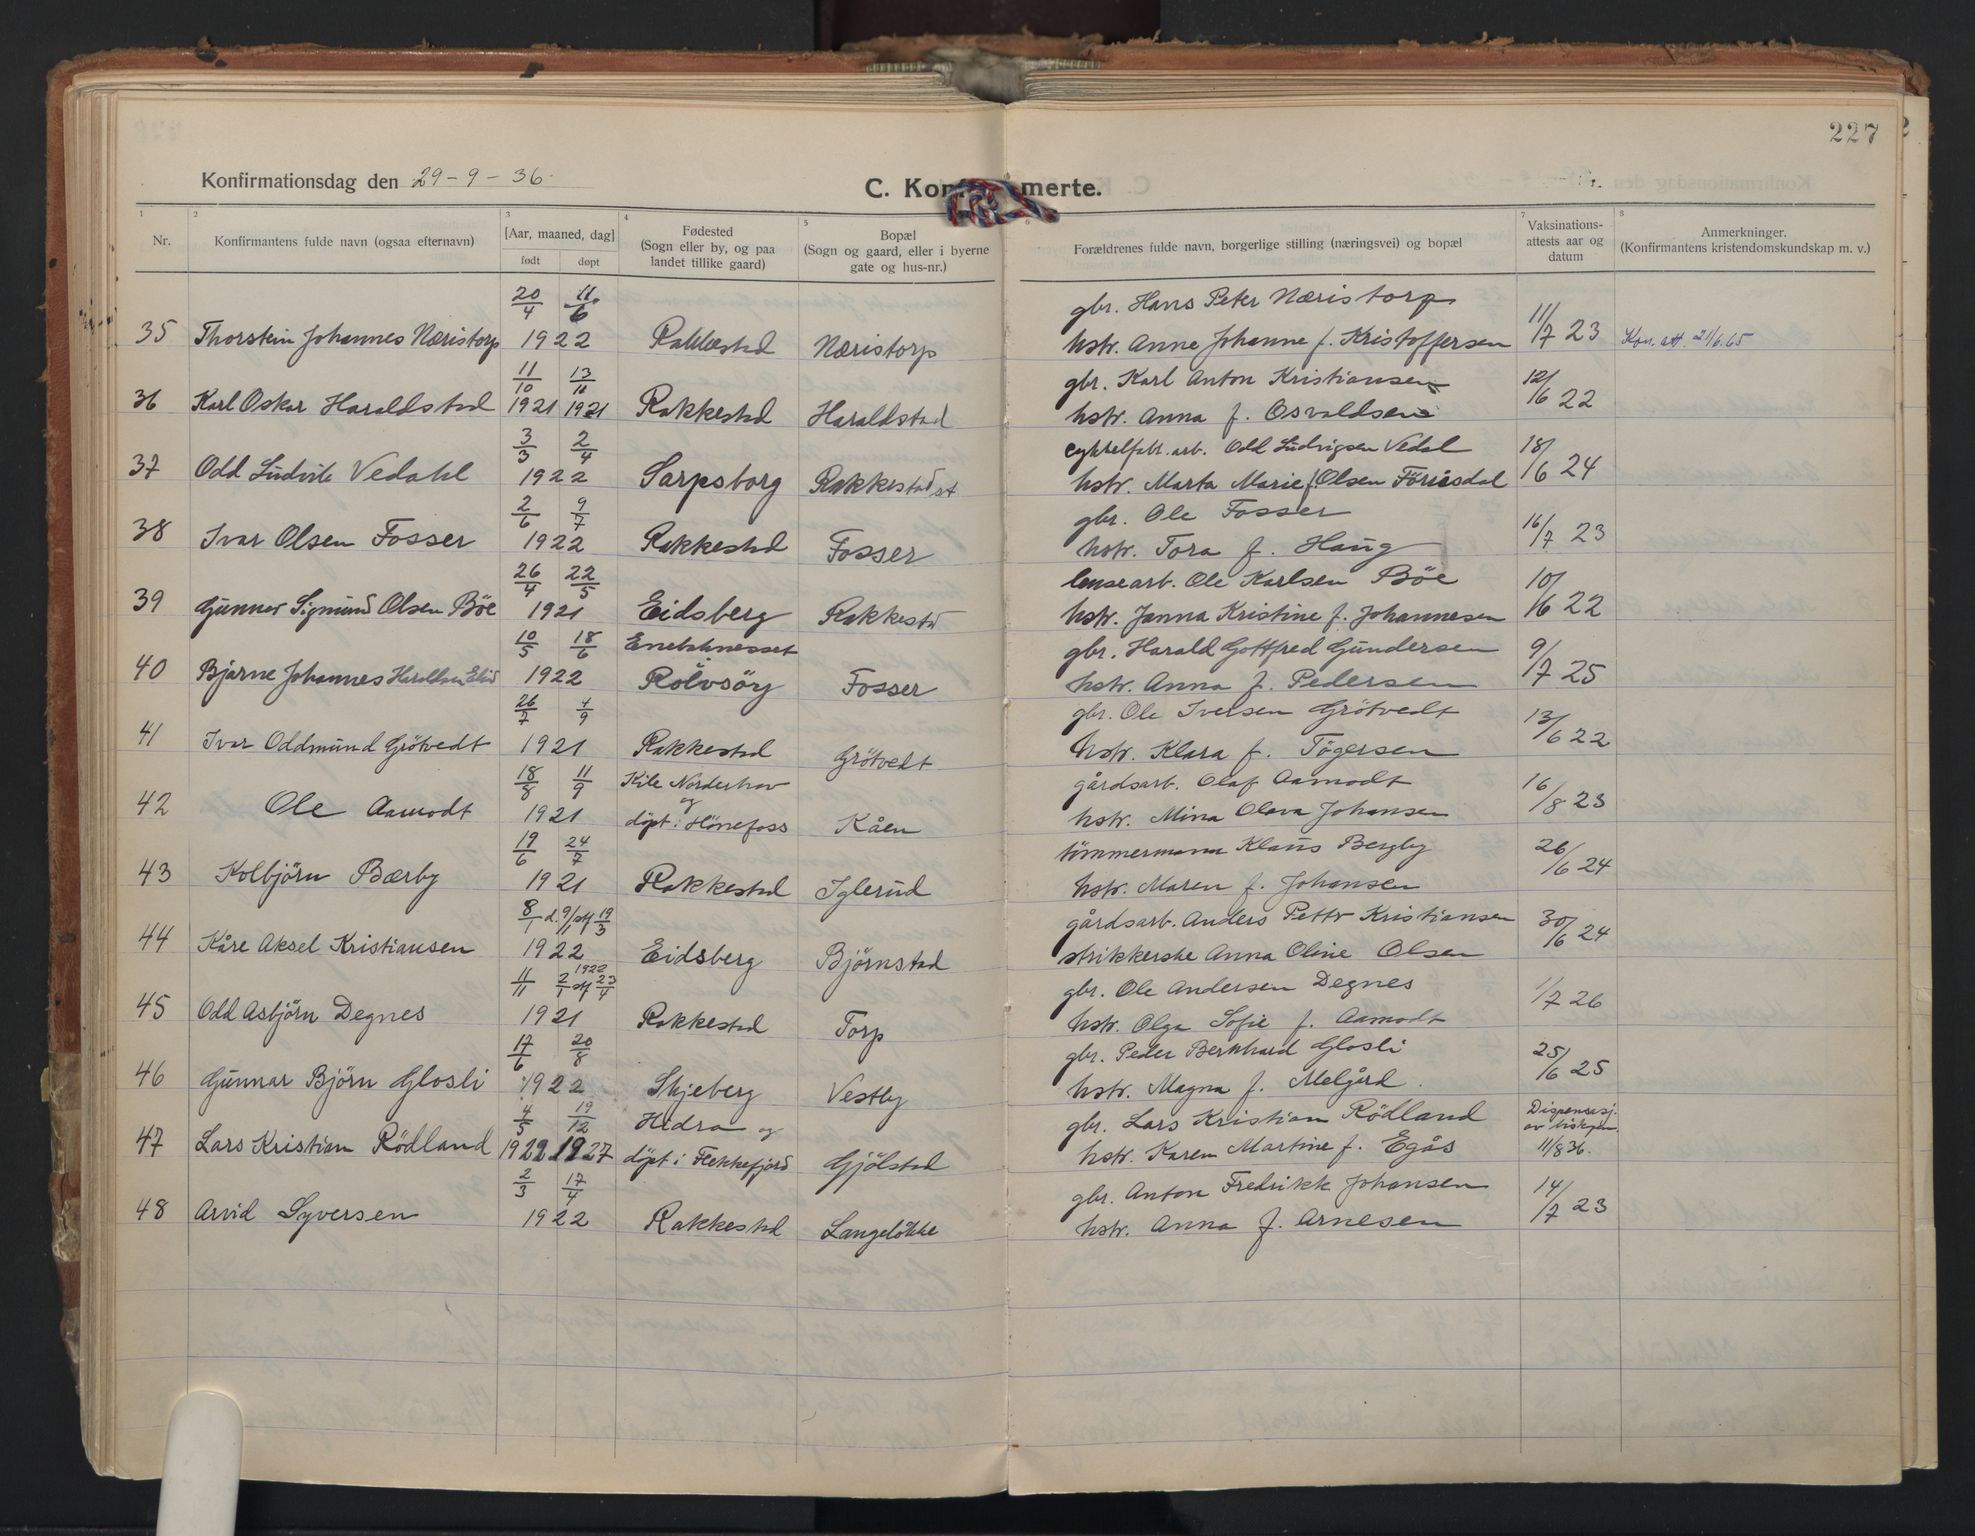 227
Konfirmationsdag den 29-9-36.
C. Konfirmerte.
1 2 3 4 5 6 7 8
Nr.
Konfirmantens fulde navn (ogsaa efternavn)
[Aar, maaned, dag]
født døpt
Fødested
(Sogn eller by, og paa
landet tillike gaard)
Bopæl
(Sogn og gaard, eller i byerne
gate og hus-nr.)
Forældrenes fulde navn, borgerlige stilling (næringsvei) og bopæl
Vaksinations-
attests aar og
datum
Anmerkninger.
(Konfirmantens kristendomskundskap m. v.)
20/4 11/6 gbr. Hans Peter Næristorp
35 Thorstein Johannes Næristorp 1922 Rakkestad Næristorp hstr. Anne Johanne f. Kristoffersen 11/7 23 Kon. att. 21/6.65
11/10 13/11 gbr. Karl Anton Kristiansen
36 Karl Oskar Haraldstad 1921 1921 Rakkestad Haraldstad hstr. Anna f. Osvaldsen 12/6 22
3/3 2/4 cykkelfabr. arb. Odd Ludvigsen Vedal
37 Odd Ludvik Vedahl 1922 Sarpsborg Rakkestad st hstr. Marta Marie f. Olsen Förisdal 18/6 24
2/6 9/7 gbr. Ole Fosser
38 Ivar Olsen Fosser 1922 Rakkestad Fosser hstr. Tora f. Haug 16/7 23
26/4 22/5 lensearb. Ole Karlsen Böe
39 Gunnar Sigmund Olsen Böe 1921 Eidsberg Rakkestd hstr. Janna Kristine f. Johannesen 10/6 22
10/5 18/6 Enebaknesset gbr. Harald Gottfred Gundersen
40 Bjarne Johannes Haraldsen 1922 Rölvsöy Fosser hstr. Anna f. Pedersen 9/7 25
26/7 4/9 gbr. Ole Iversen Grötvedt
41 Ivar Oddmund Grötvedt 1921 Rakkestad Grötvedt hstr. Klara f. Tögersen 13/6 22
18/8 11/9 Kile Norderhov og gårdsarb. Olaf Aamodt
42 Ole Aamodt 1921 döpt i Hönefoss Kåen hstr. Mina Olava Johansen 16/8 23
19/6 24/7 tömmermann Klaus Bergby
43 Kolbjörn Bærby 1921 Rakkestad Iglerud hstr. Maren f. Johansen 26/6 24
8/1 d. 9/1 stf 19/3 gårdsarb. Anders Petter Kristiansen
44 Kåre Aksel Kristiansen 1922 Eidsberg Björnstad strikkerske Anna Oline Olsen 30/6 24
11/11 2/1 1922 stf 23/4 gbr. Ole Andersen Degnes
45 Odd Asbjörn Degnes 1921 Rakkestad Torp hstr. Olga Sofie f. Aamodt 1/7 26
17/6 20/8 gbr. Peder Bernhard Glosli
46 Gunnar Björn Glosli 1922 Skjeberg Vestby hstr. Magna f. Melgård. 25/6 25
4/5 19/12 Hidra og gbr. Lars Kristian Rödland Dispensasj. av biskopen
47 Lars Kristian Rödland 1922 1927 döpt i Flekkefjord Gjölstad hstr. Karen Martine f. Egås 11/8 36.
2/3 17/4 gbr. Anton Fredrikk Johansen
48 Arvid Syversen 1922 Rakkestad Langelökke hstr. Anna f. Arnesen 14/7 23